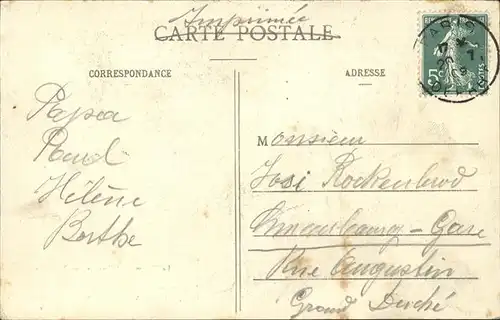 Imprimée
CARTE POSTALE
CORRESPONDANCE
Papa
Paul
Hélène
Berthe
ADRESSE
Monsieur
Josi Rockenbrod
Luxembourg-Gare
Rue Augustin
Grand Duché
5c
POSTES